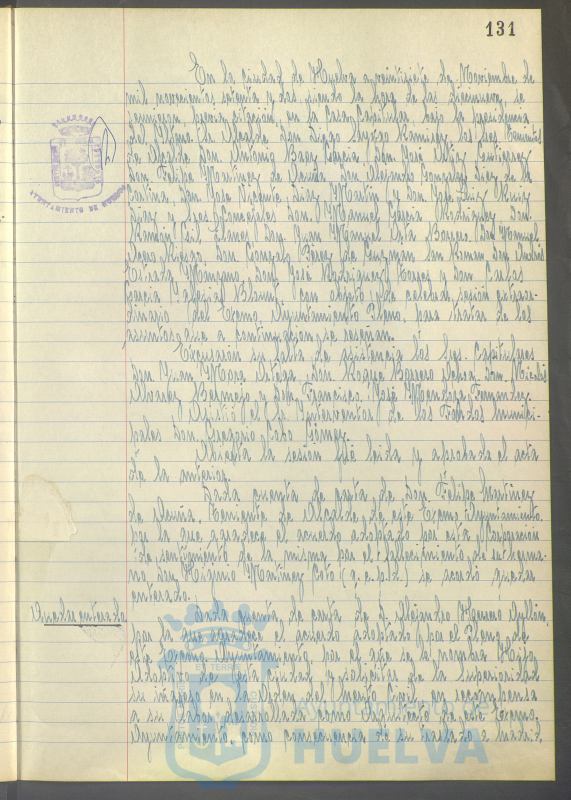 131
En la ciudad de Huelva a veintisiete de Noviembre de
mil novecientos setenta y dos siendo la hora de las diecinueve, se
reunieron, previa citación, en la Casa Capitular, bajo la presidencia
del Iltmo. Sr. Alcalde Don Diego Ramirez, los Sres. Tenientes
de Alcalde Don Antonio Baez Garcia, Don Jose Gutierrez
Don Felipe Martinez de Don Alejandro Gonzalez Diaz de la
Cortina, Don Jose Vicente Diaz Martin y Don Jose Luis Ruiz
Diaz y Sres. Concejales Don Manuel Garcia Rodriguez, Don
Ramón Gil Llanes, Don Juan Manuel Vita Borrero, Don Manuel
Don Gonzalo Pérez de Guzman San Roman, Don
Estrada Don José Rodriguez y Don Carlos
Garcia con objeto de celebrar sesión extraor-
dinaria del Excmo. Ayuntamiento Pleno, para tratar de los
asuntos que a continuación se reseñan.
Excusaron su falta de asistencia los Sres. Capitulares
Don Juan Mora Don Roque Borrero Don Nicolás
Alvarez Bermejo y Don Francisco José Mendoza Fernandez
Asistió el Sr. Interventor de los Fondos Munici-
pales Don Gregorio Cobo Gómez.
Abierta la sesión fué leida y aprobada el acta
de la anterior.
Dada cuenta de carta de Don Felipe Martinez
de Teniente de Alcalde de este Excmo. Ayuntamiento,
por la que agradece el acuerdo adoptado por esta Corporación
de sentimiento de la misma por el fallecimiento de su herma-
no Don Martinez (q.e.p.d.) se acordó quedar
enterado.
Quedar enterado
Dada cuenta de carta de D. Alejandro Herrero
por la que agradece el acuerdo adoptado por el Pleno de
este Excmo. Ayuntamiento, por el que se le nombra Hijo
Adoptivo de esta ciudad y solicitar de la Superioridad
su ingreso en la Orden del Merito Civil, en recompensa
a su labor desarrollada como de este Excmo.
Ayuntamiento, como consecuencia de su traslado a Madrid.
AYUNTAMIENTO DE HUELVA
Ayuntamiento de
HUELVA